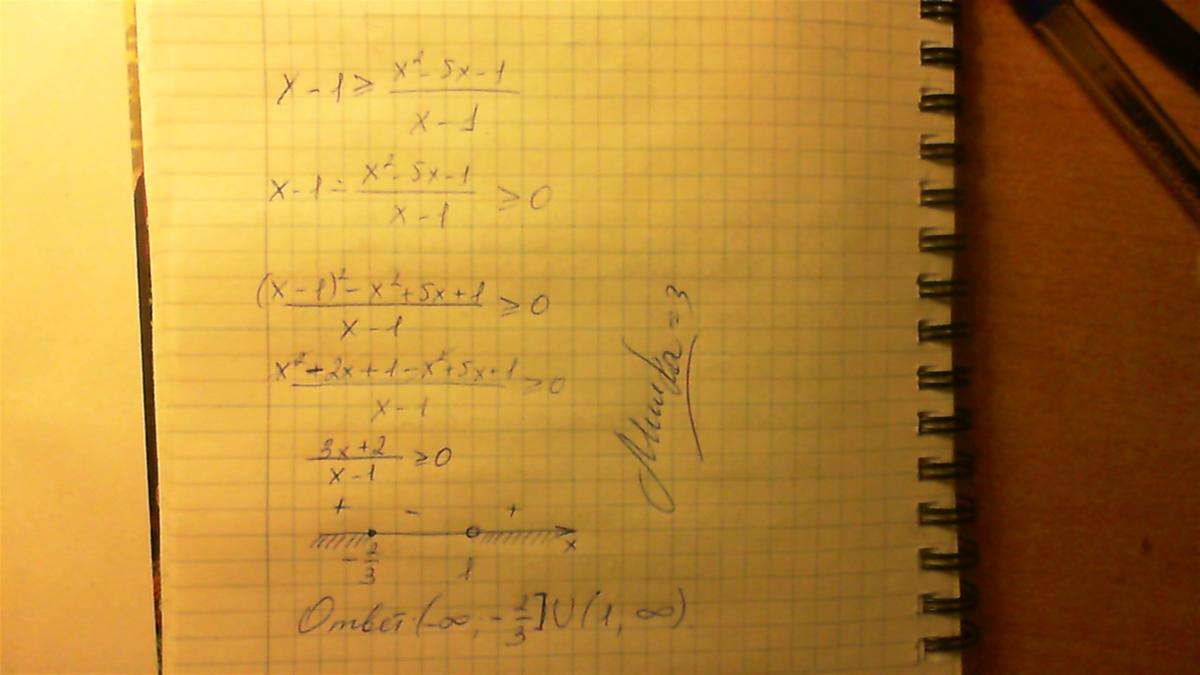 x - 1 ≥ (x² - 5x - 1)/(x - 1)
x - 1 - (x² - 5x - 1)/(x - 1) ≥ 0
((x - 1)² - x² + 5x + 1)/(x - 1) ≥ 0
(x² - 2x + 1 - x² + 5x + 1)/(x - 1) ≥ 0
(3x + 2)/(x - 1) ≥ 0
+ - +
-2/3 1 x
Ответ (-∞, -2/3] U (1, ∞)
Мишка = 3